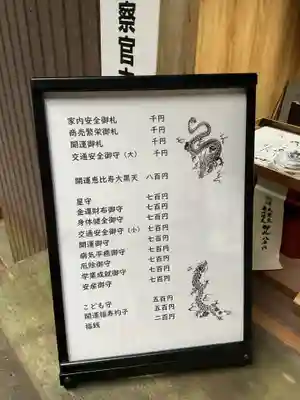 祭官
家内安全御札　千円
商売繁栄御札　千円
開運御札　千円
交通安全御守（大）　千円
開運恵比寿大黒天　八百円
星守　七百円
金運財布御守　七百円
身体健全御守　七百円
交通安全御守（小）　七百円
開運御守　七百円
病気平癒御守　七百円
厄除御守　七百円
学業成就御守　七百円
安産御守　七百円
こども守　五百円
開運福寿杓子　五百円
福銭　二百円